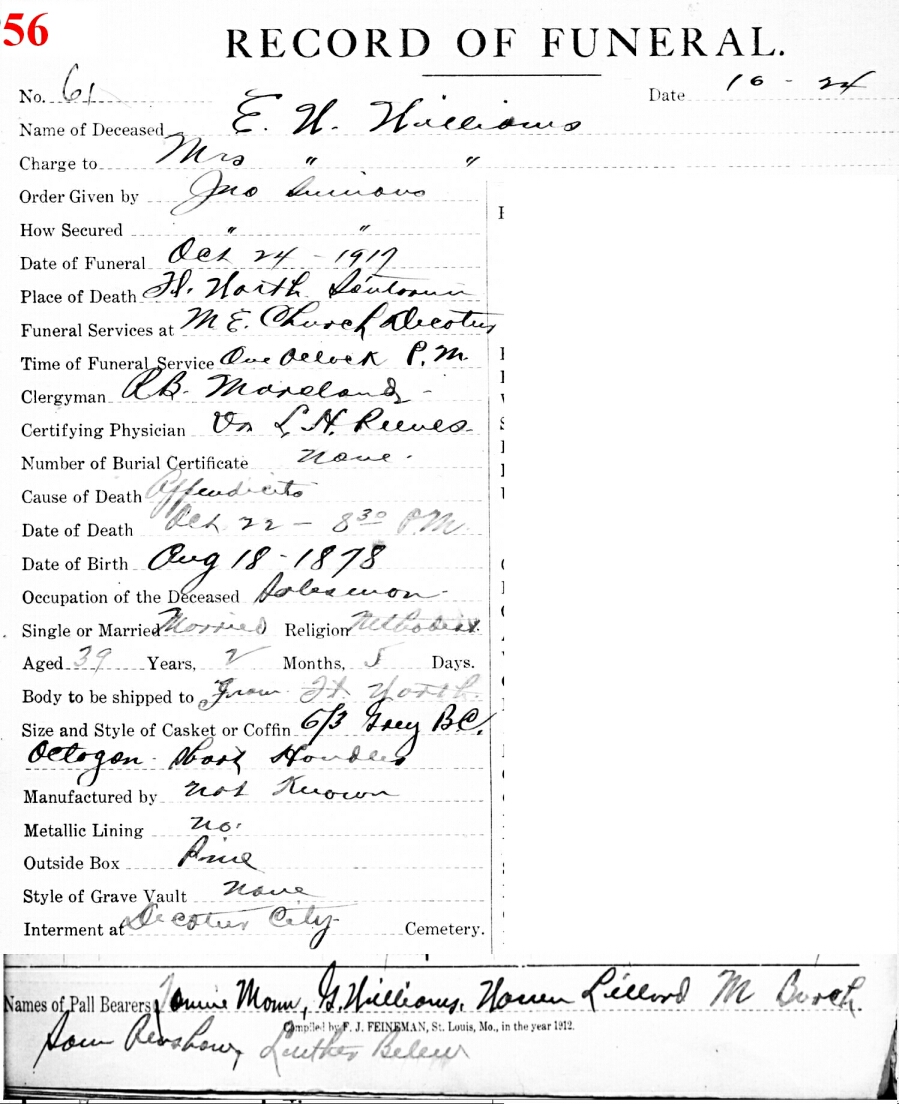 56
RECORD OF FUNERAL.
No. 61 Date 10 - 24
Name of Deceased E. W. Williams
Charge to Mrs " "
Order Given by Jno Simmons
How Secured " "
Date of Funeral Oct 24 - 1917
Place of Death Ft. Worth
Funeral Services at M E. Church Decotur
Time of Funeral Service One Oclock P.M.
Clergyman R.B. Moreland
Certifying Physician Dr L. H. Reeves
Number of Burial Certificate None.
Cause of Death Appendicits
Date of Death Oct 22 - 8 30 P.M.
Date of Birth Aug 18 - 1878
Occupation of the Deceased Salesman
Single or Married Married Religion Methodist
Aged 39 Years, 2 Months, 5 Days.
Body to be shipped to From Ft. Worth.
Size and Style of Casket or Coffin 6/3 Grey B.C.
Octogon Handles
Manufactured by not Known
Metallic Lining No.
Outside Box Pine
Style of Grave Vault None
Interment at Decotur City Cemetery.
Names of Pall Bearers Mann, G. Williams, Lillard M Burch.
Compiled by F. J. FEINEMAN, St. Louis, Mo., in the year 1912.
Sam Renshaw, Luther Belew